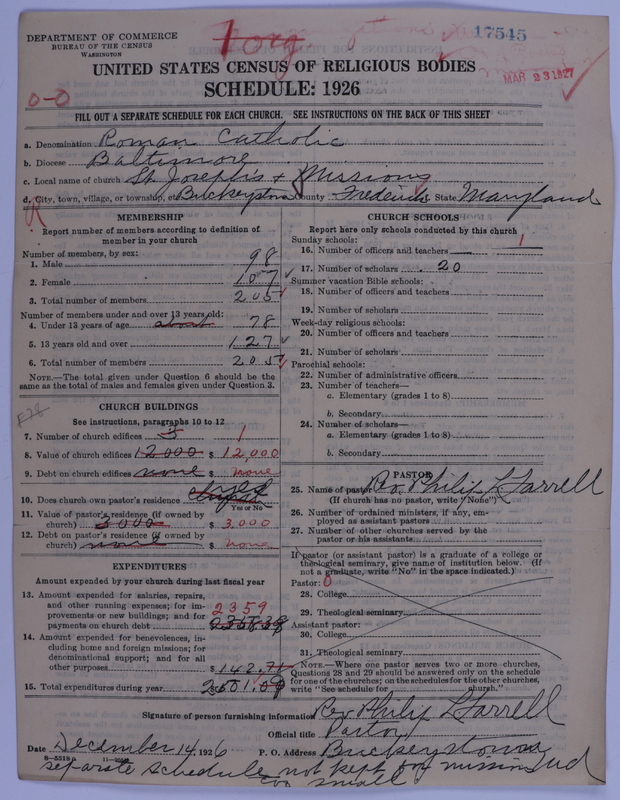 DEPARTMENT OF COMMERCE
BUREAU OF THE CENSUS
WASHINGTON
1 org
17545
MAR 23 1927
UNITED STATES CENSUS OF RELIGIOUS BODIES
SCHEDULE: 1926
0-0
FILL OUT A SEPARATE SCHEDULE FOR EACH CHURCH. SEE INSTRUCTIONS ON THE BACK OF THIS SHEET
a. Denomination Roman Catholic
b. Diocese Baltimore
c. Local name of church St Joseph's & Missions
d. City, town, village, or township, etc. Buckeystown County Frederick State Maryland
MEMBERSHIP
Report number of members according to definition of member in your church
Number of members, by sex:
1. Male 98
2. Female 107
3. Total number of members 205
Number of members under and over 13 years old:
4. Under 13 years of age about 78
5. 13 years old and over 127
6. Total number of members 205
NOTE.—The total given under Question 6 should be the same as the total of males and females given under Question 3.
CHURCH BUILDINGS
See instructions, paragraphs 10 to 12
7. Number of church edifices 3 1
8. Value of church edifices 12000 $ 12,000
9. Debt on church edifices none $ none
10. Does church own pastor's residence yes
Yes or No
11. Value of pastor's residence (if owned by church) 3000 $ 3,000
12. Debt on pastor's residence (if owned by church) none $ none
EXPENDITURES
Amount expended by your church during last fiscal year
13. Amount expended for salaries, repairs, and other running expenses; for improvements or new buildings; and for payments on church debt 2359
14. Amount expended for benevolences, including home and foreign missions; for denominational support; and for all other purposes $ 142.71
15. Total expenditures during year 2501.09
CHURCH SCHOOLS
Report here only schools conducted by this church
Sunday schools: 1
16. Number of officers and teachers
17. Number of scholars 20
Summer vacation Bible schools:
18. Number of officers and teachers
19. Number of scholars
Week-day religious schools:
20. Number of officers and teachers
21. Number of scholars
Parochial schools:
22. Number of administrative officers
23. Number of teachers—
a. Elementary (grades 1 to 8)
b. Secondary
24. Number of scholars—
a. Elementary (grades 1 to 8)
b. Secondary
PASTOR
25. Name of pastor Rev Philip L Farrell
(If church has no pastor, write "None")
26. Number of ordained ministers, if any, employed as assistant pastors
27. Number of other churches served by the pastor or his assistants
If pastor (or assistant pastor) is a graduate of a college or theological seminary, give name of institution below. (If not a graduate, write "No" in the space indicated.)
Pastor: 0
28. College
29. Theological seminary
Assistant pastor:
30. College
31. Theological seminary
NOTE.—Where one pastor serves two or more churches, Questions 28 and 29 should be answered only on the schedule for one of the churches; on the schedules for the other churches, write "See schedule for church."
Signature of person furnishing information Rev Philip L Farrell
Official title Pastor
Date December 14, 1926 P. O. Address Buckeystown
Md
separate schedule not kept for missions
too small